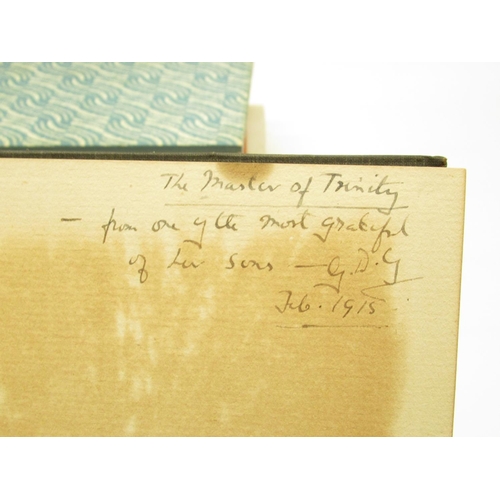 The Master of Trinity
— from one of the most grateful
of her sons — G.D.G
Feb. 1915